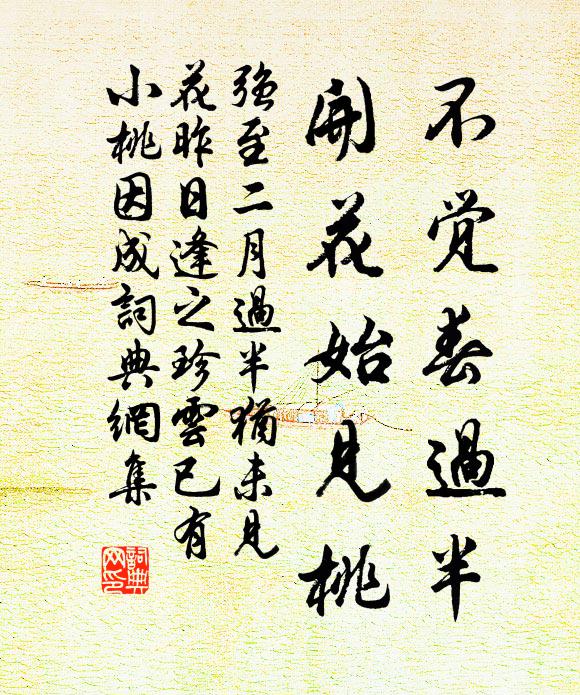 不觉春過半
開花始見桃
强至二月過半猶未見
花昨日逢之珍雲已有
小桃因成詞典網集
詞典
网印